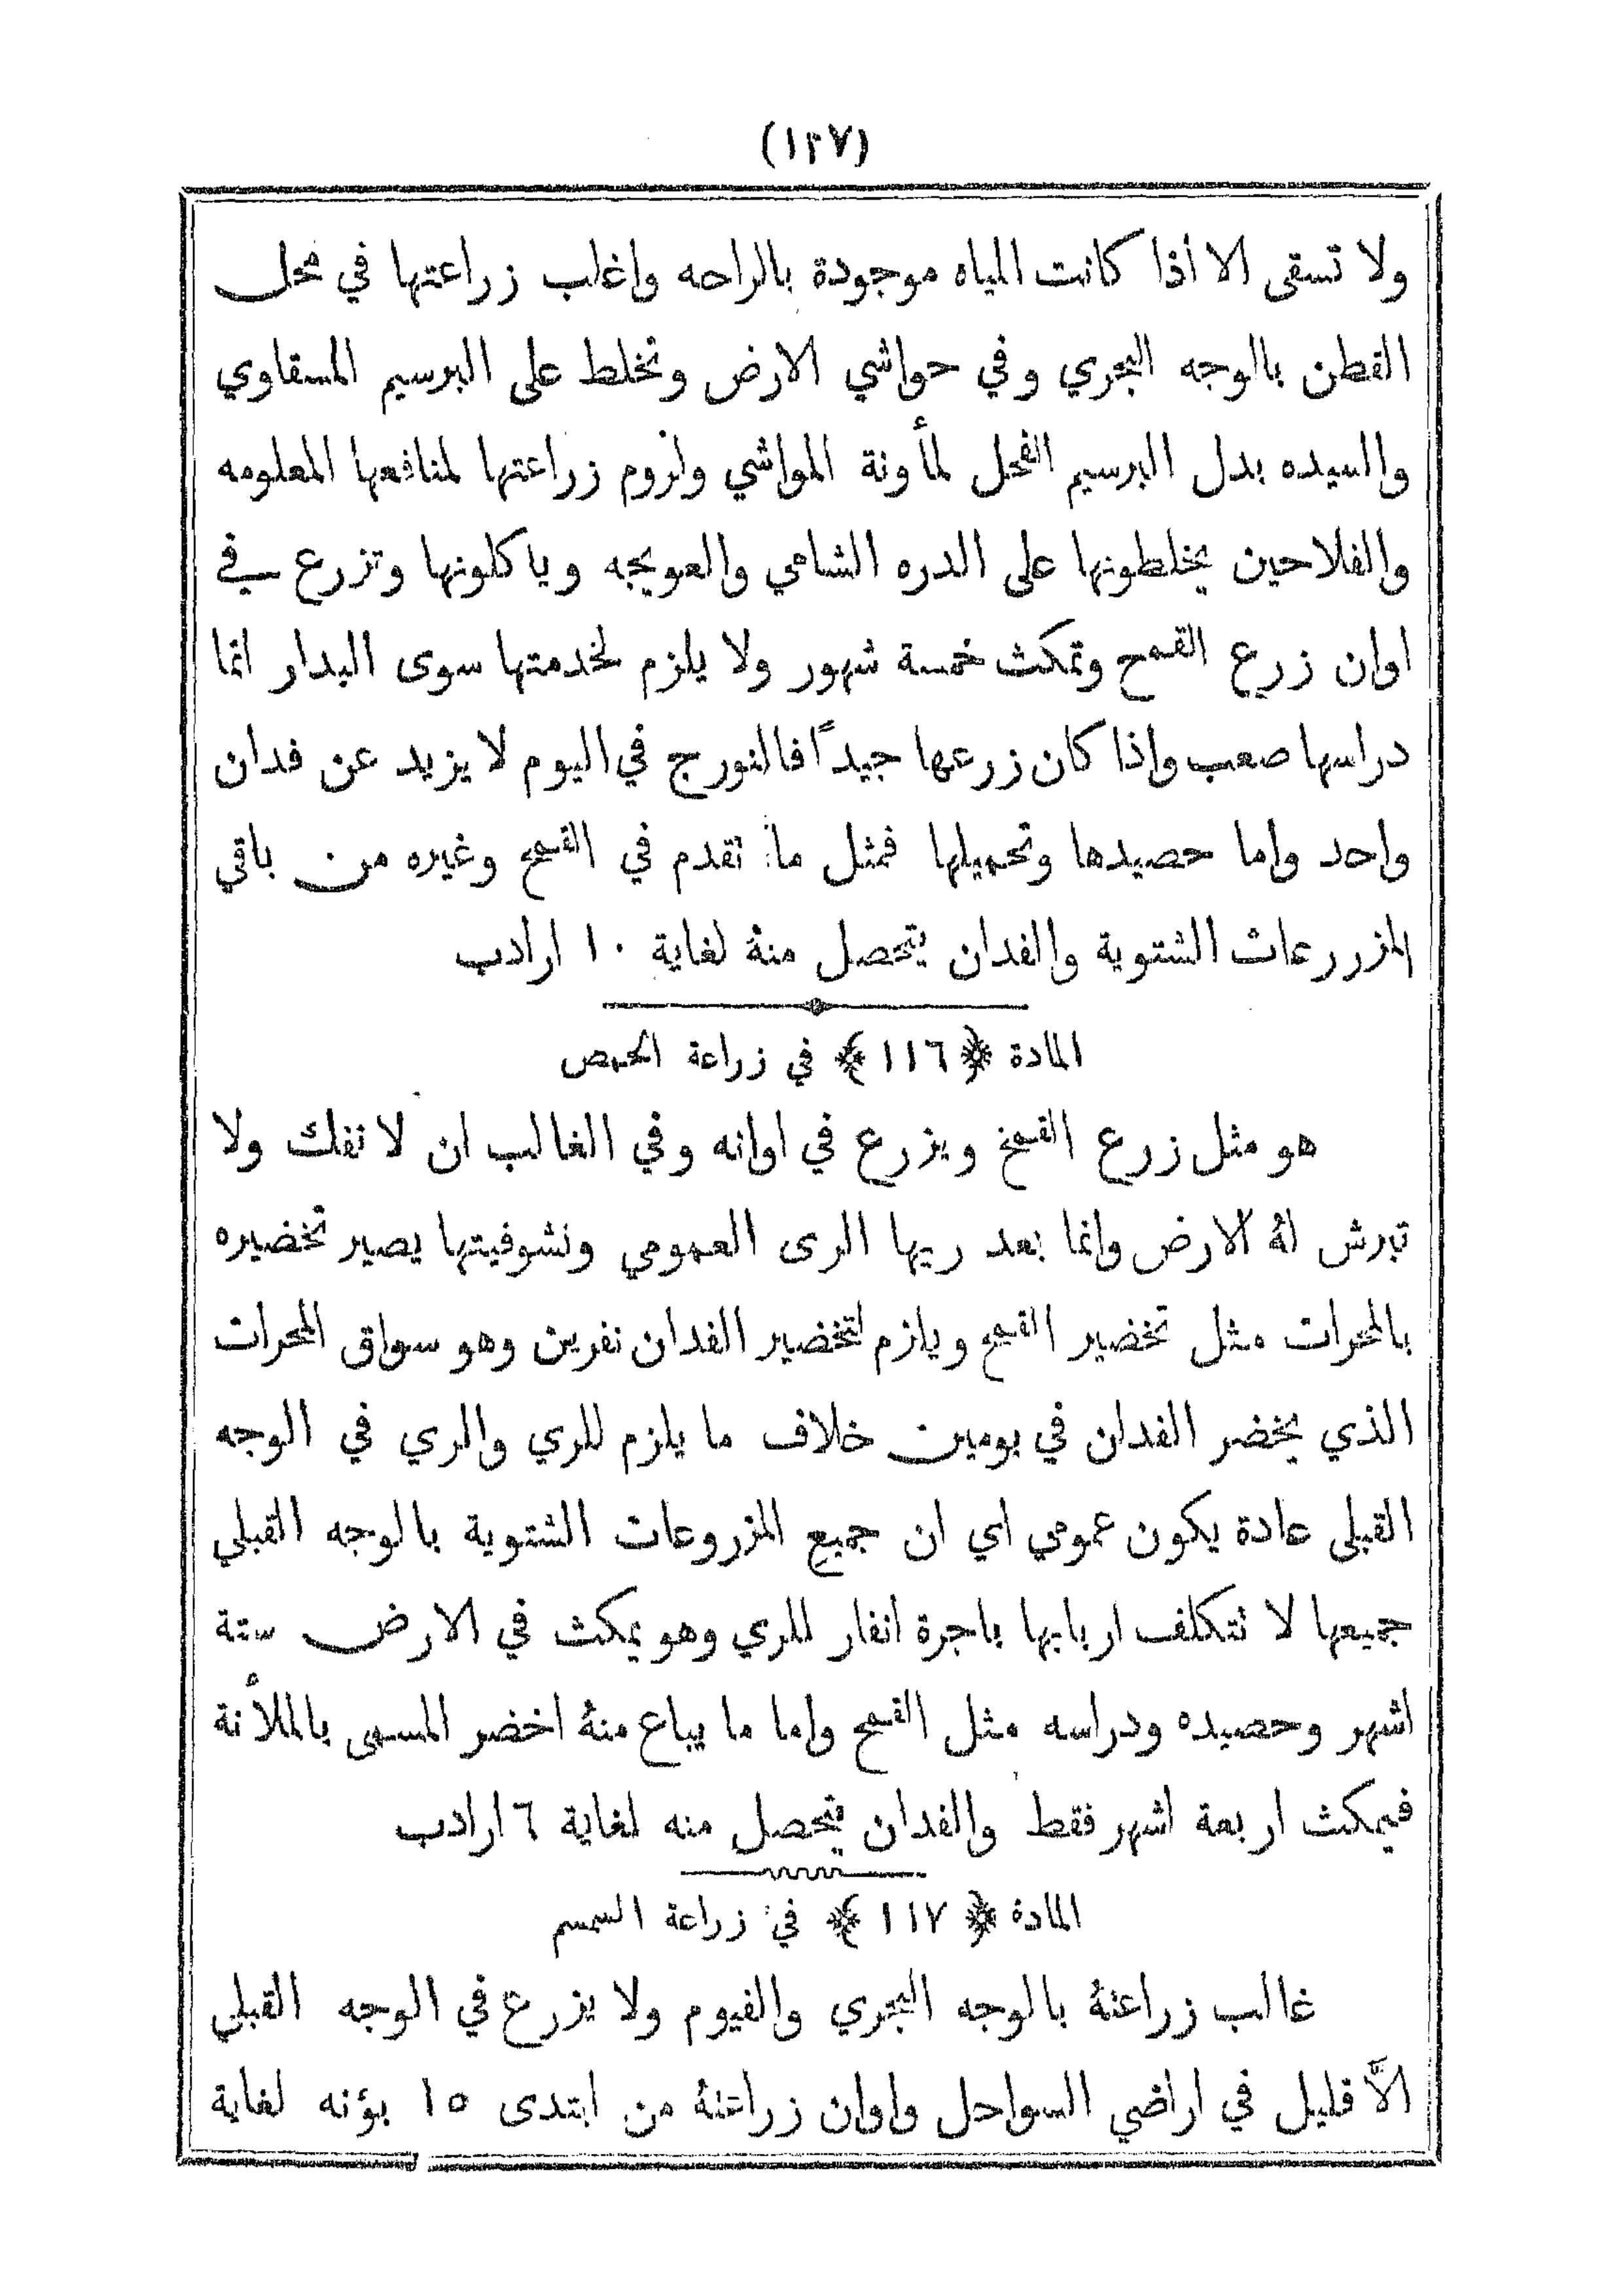 (١٢٧)
ولا تسقى الا أذا كانت المياه موجودة بالراحه واغلب زراعتها في محل
القطن بالوجه البحري وفي حواشي الارض وتخلط على البرسيم المسقاوي
والسيده بدل البرسيم الفحل لمأونة المواشي ولزوم زراعتها لمنافعها المعلومه
والفلاحين يخلطونها على الدره الشامي والعويجه وياكلونها وتزرع في
اوان زرع القمح وتمكث خمسة شهور ولا يلزم لخدمتها سوى البدار انما
دراسها صعب واذا كان زرعها جيداً فالنورج في اليوم لا يزيد عن فدان
واحد واما حصيدها وتحميلها فمثل ما نقدم في القمح وغيره من باقي
المزررعات الشتوية والفدان يتحصل منهُ لغاية ١٠ ارادب
المادة ﴿١١٦﴾ في زراعة الحمص
هو مثل زرع القمح ويزرع في اوانه وفي الغالب ان لا نفلك ولا
تبرش لهُ الارض وانما بعد ريها الرى العمومي ونشوفيتها يصير تخضيره
بالمحرات مثل تخضير القمح ويلزم لتخضير الفدان نفرين وهو سواق المحرات
الذي يخضر الفدان في يومين خلاف ما يلزم للري والري في الوجه
القبلى عادة يكون عمومي اي ان جميع المزروعات الشتوية بالوجه القبلي
جميعها لا نتكلف اربابها باجرة انفار للري وهو يمكث في الارض ستة
اشهر وحصيده ودراسه مثل القمح واما ما يباع منهُ اخضر المسمى بالملأنة
فيمكث اربعة اشهر فقط والفدان يتحصل منه لغاية ٦ ارادب
المادة ﴿١١٧﴾ في زراعة السمسم
غالب زراعنهُ بالوجه البحري والفيوم ولا يزرع في الوجه القبلي
الاَّ قليل في اراضي السواحل واوان زراعنهُ من ابتدى ١٥ بؤنه لغاية